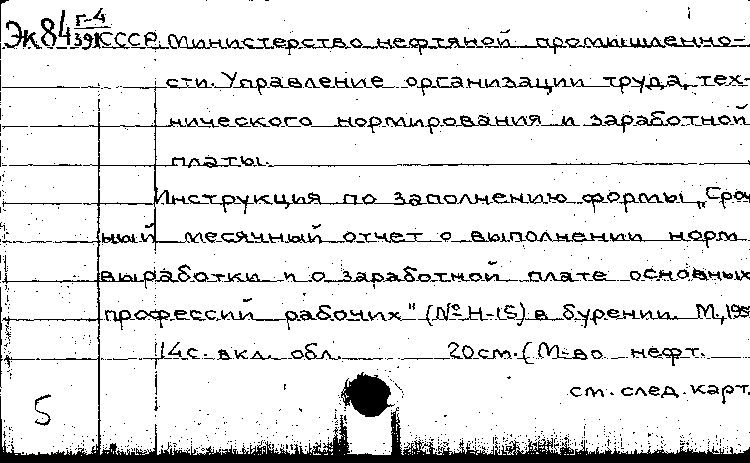 Эк84 Г-4
391
СССР. Министерство нефтяной промышленно-
сти. Управление организации труда, тех-
нического нормирования и заработной
платы.
Инструкция по заполнению формы „Сроч
ный месячный отчет о выполнении норм
выработки и о заработной плате основных
профессий рабочих" (№ Н-15) в бурении. М., 195
14с. вкл. обл. 20см. (М-во нефт.
см. след. карт.
5